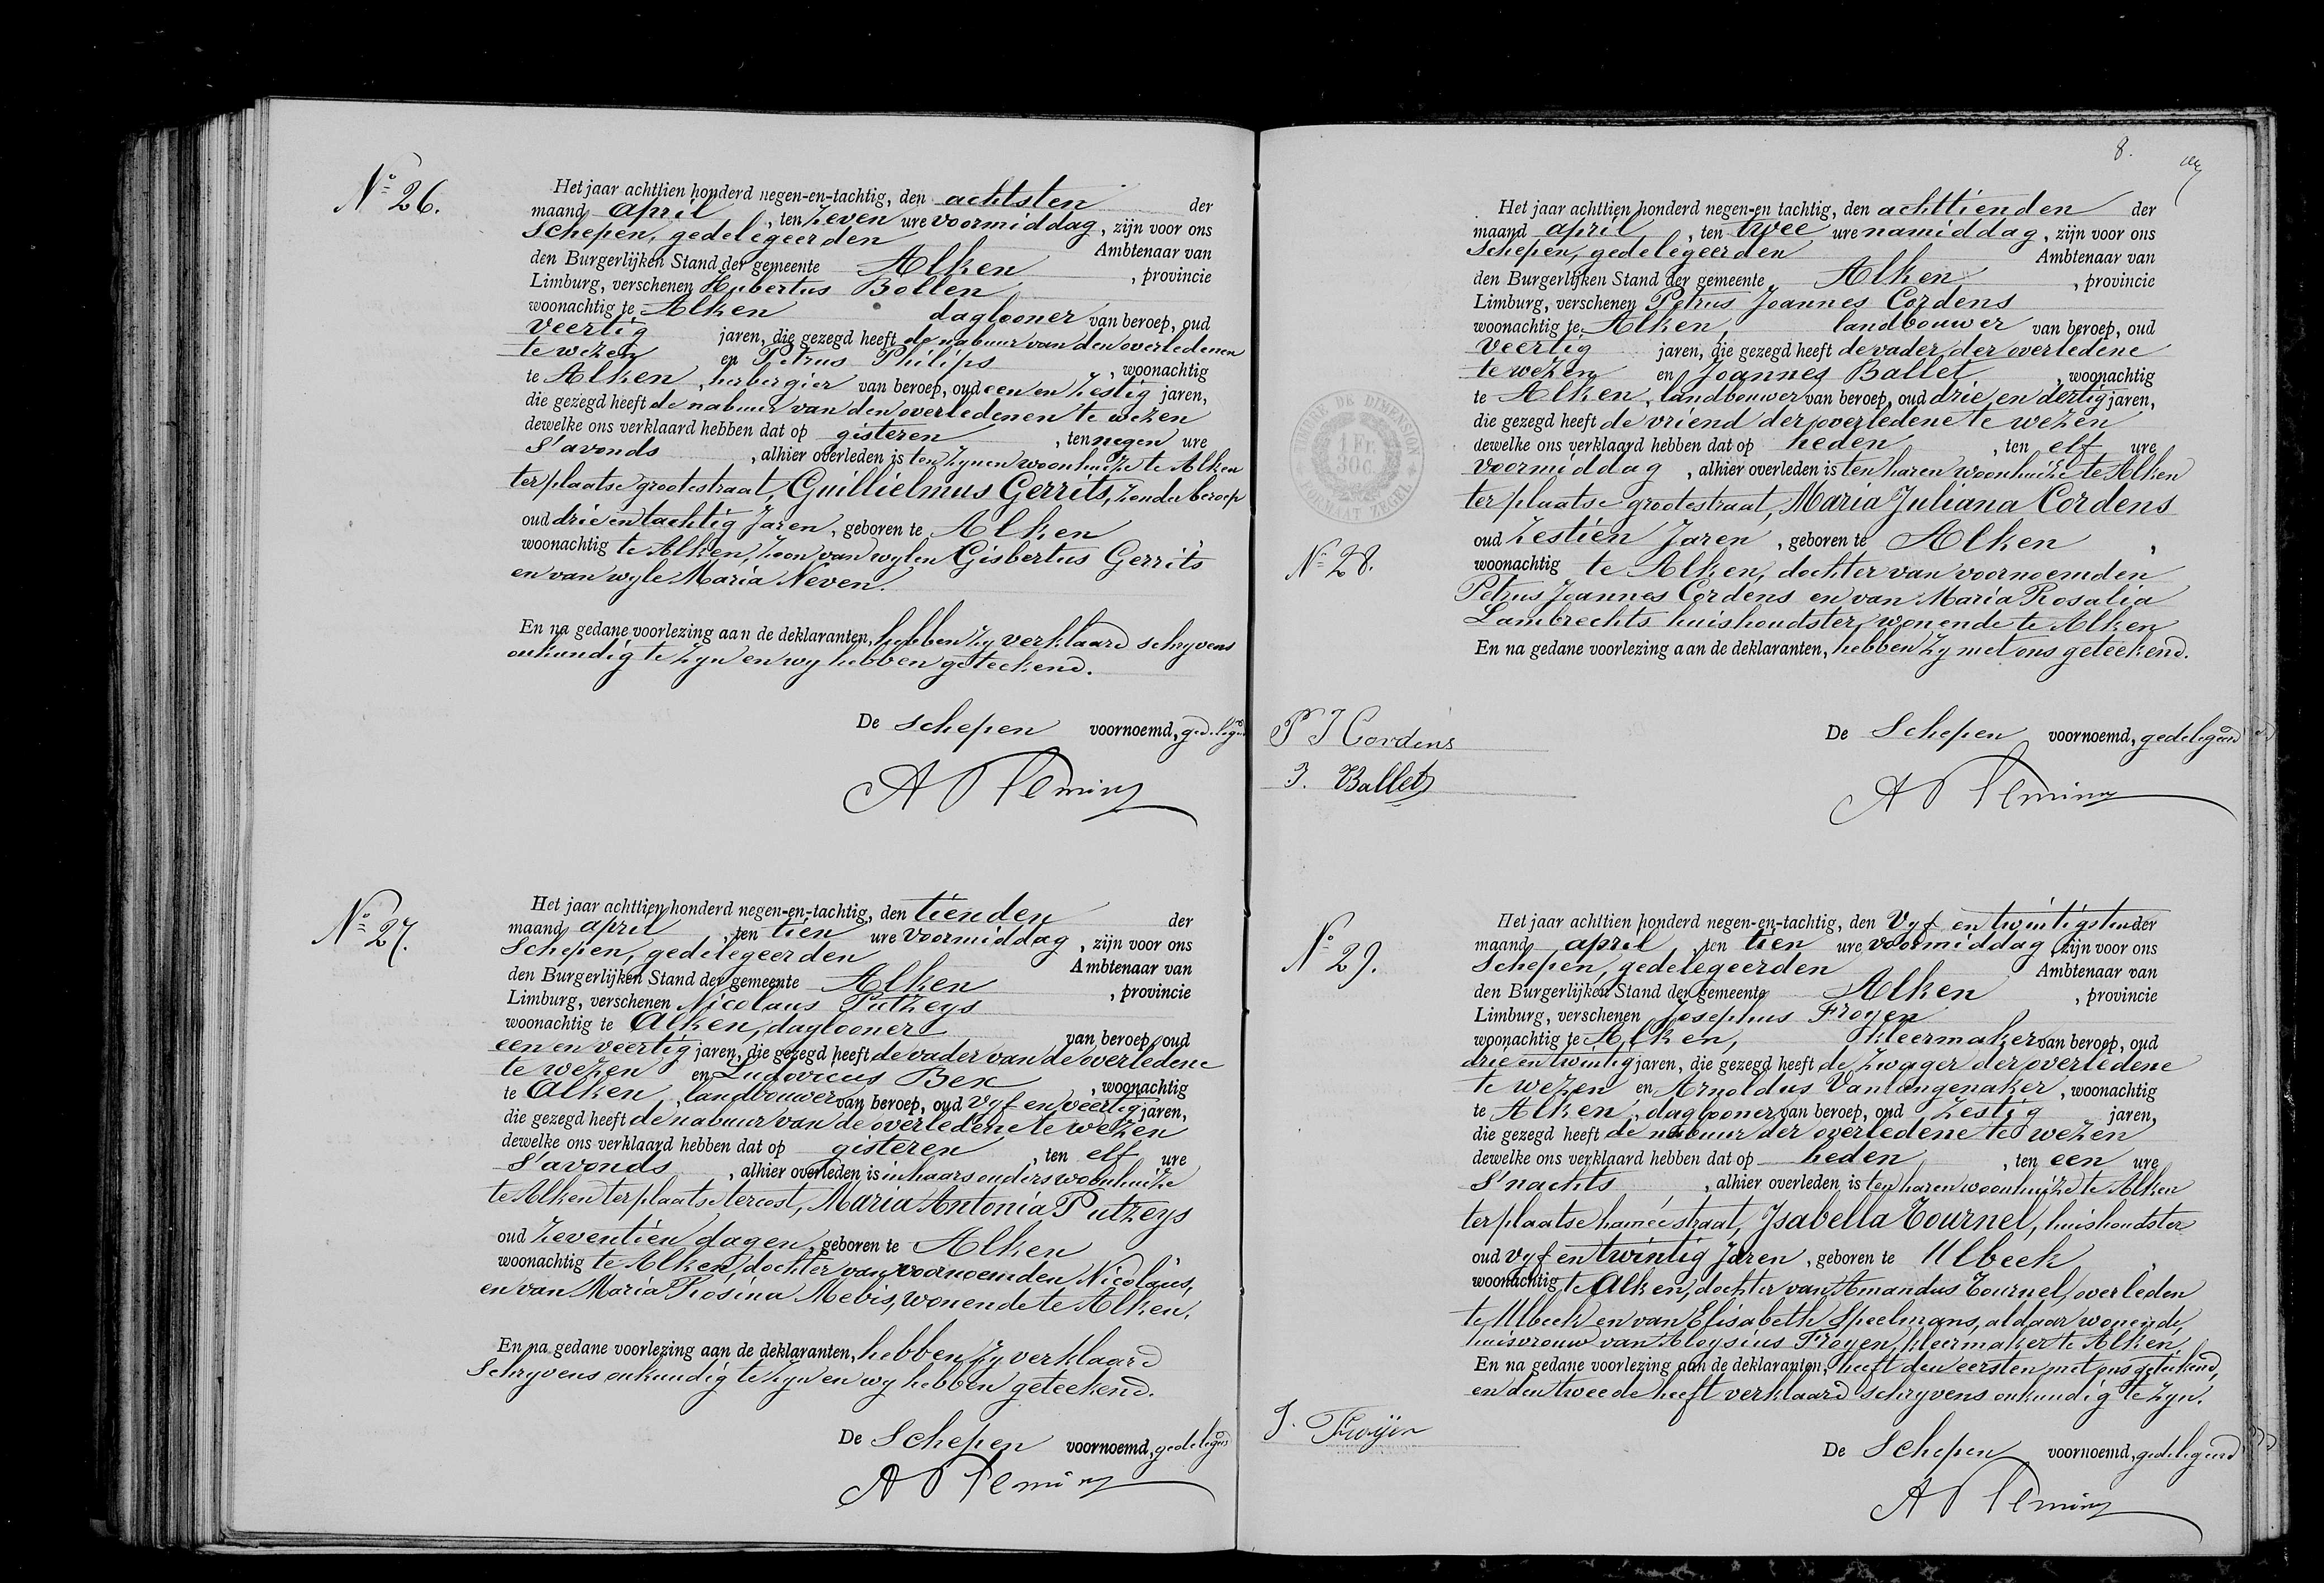 Nº 26.
Het jaar achttien honderd negen-en-tachtig, den achtsten der
maand april, ten Zeven ure voormiddag, zijn voor ons
Schepen, gedelegeerden Ambtenaar van
den Burgerlijken Stand der gemeente Alken, provincie
Limburg, verschenen Hubertus Bollen
woonachtig te Alken daglooner van beroep, oud
Veertig jaren, die gezegd heeft de nabuur van den overledenen
te wezen en Petrus Philips, woonachtig
te Alken, herbergier van beroep, oud een en Zestig jaren,
die gezegd heeft de nabuur van den overledenen te wezen
dewelke ons verklaard hebben dat op gisteren, ten negen ure
S'avonds, alhier overleden is ten Zynen woonhuize te Alken
ter plaatse grootestraat, Guillielmus Gerrits, Zonder beroep
oud drie en tachtig Jaren, geboren te Alken
woonachtig te Alken, Zoon van wylen Gisbertus Gerrits
en van wyle Maria Neven.
En na gedane voorlezing aan de deklaranten, hebben Zy verklaard schryvens
onkundig te Zyn en wy hebben geteekend.
De Schepen voornoemd, gedelegeerd
A Fleming
Nº 27.
Het jaar achttien honderd negen-en-tachtig, den tienden der
maand april, ten tien ure voormiddag, zijn voor ons
Schepen, gedelegeerden Ambtenaar van
den Burgerlijken Stand der gemeente Alken, provincie
Limburg, verschenen Nicolaus Putzeys
woonachtig te Alken, daglooner van beroep, oud
een en veertig jaren, die gezegd heeft de vader van de overledene
te wezen en Ludovicus Bex, woonachtig
te Alken, landbouwer van beroep, oud vyf en veertig jaren,
die gezegd heeft de nabuur van de overledene te wezen
dewelke ons verklaard hebben dat op gisteren, ten elf ure
S'avonds, alhier overleden is in haars ouders woonhuize
te Alken ter plaatse tercost, Maria Antonia Putzeys
oud Zeventien dagen, geboren te Alken
woonachtig te Alken, dochter van voornoemden Nicolaüs,
en van Maria Rosina Mebis, wonende te Alken.
En na gedane voorlezing aan de deklaranten, hebben Zy verklaard
Schryvens onkundig te Zyn en wy hebben geteekend.
De Schepen voornoemd, gedelegeerd
A Fleming
8.
Het jaar achttien honderd negen-en tachtig, den achttienden der
maand april, ten twee ure namiddag, zijn voor ons
Schepen, gedelegeerden Ambtenaar van
den Burgerlijken Stand der gemeente Alken, provincie
Limburg, verschenen Petrus Joannes Cordens
woonachtig te Alken, landbouwer van beroep, oud
Veertig jaren, die gezegd heeft de vader der overledene
te wezen en Joannes Ballet, woonachtig
te Alken, landbouwer van beroep, oud drie en dertig jaren,
die gezegd heeft de vriend der overledene te wezen
dewelke ons verklaard hebben dat op heden, ten elf ure
voormiddag, alhier overleden is ten haren woonhuize te Alken
ter plaatse grootestraat, Maria Juliana Cordens
Nº 28.
oud Zestien Jaren, geboren te Alken,
woonachtig te Alken, dochter van voornoemden
Petrus Joannes Cordens en van Maria Rosalia
Lambrechts huishoudster, wonende te Alken
En na gedane voorlezing aan de deklaranten, hebben Zy met ons geteekend.
TIMBRE DE DIMENSION
1 Fr.
30 C.
FORMAAT ZEGEL
P J Cordens
J. Ballet
De Schepen voornoemd, gedelegeerd
A Fleming
Nº 29.
Het jaar achttien honderd negen-en-tachtig, den Vyf en twintigsten der
maand april, ten tien ure voormiddag, zijn voor ons
Schepen, gedelegeerden Ambtenaar van
den Burgerlijken Stand der gemeente Alken, provincie
Limburg, verschenen Josephus Froyen
woonachtig te Alken, kleermaker van beroep, oud
drie en twintig jaren, die gezegd heeft de Zwager der overledene
te wezen en Arnoldus Vanlangenaker, woonachtig
te Alken, daglooner van beroep, oud Zestig jaren,
die gezegd heeft de nabuur der overledene te wezen
dewelke ons verklaard hebben dat op heden, ten een ure
S'nachts, alhier overleden is ten haren woonhuize te Alken
ter plaatse hameestraat, Isabella Tournel, huishoudster
oud vyf en twintig Jaren, geboren te Ulbeek,
woonachtig te Alken, dochter van Amandus Tournel, overleden
te Ulbeek en van Elisabeth Speelmans, aldaar wonende,
huisvrouw van Aloysius Froyen, kleermaker te Alken,
En na gedane voorlezing aan de deklaranten, heeft den eersten met ons geteekend,
en den tweede heeft verklaard schryvens onkundig te Zyn.
J. Froÿen
De Schepen voornoemd, gedelegeerd
A Fleming